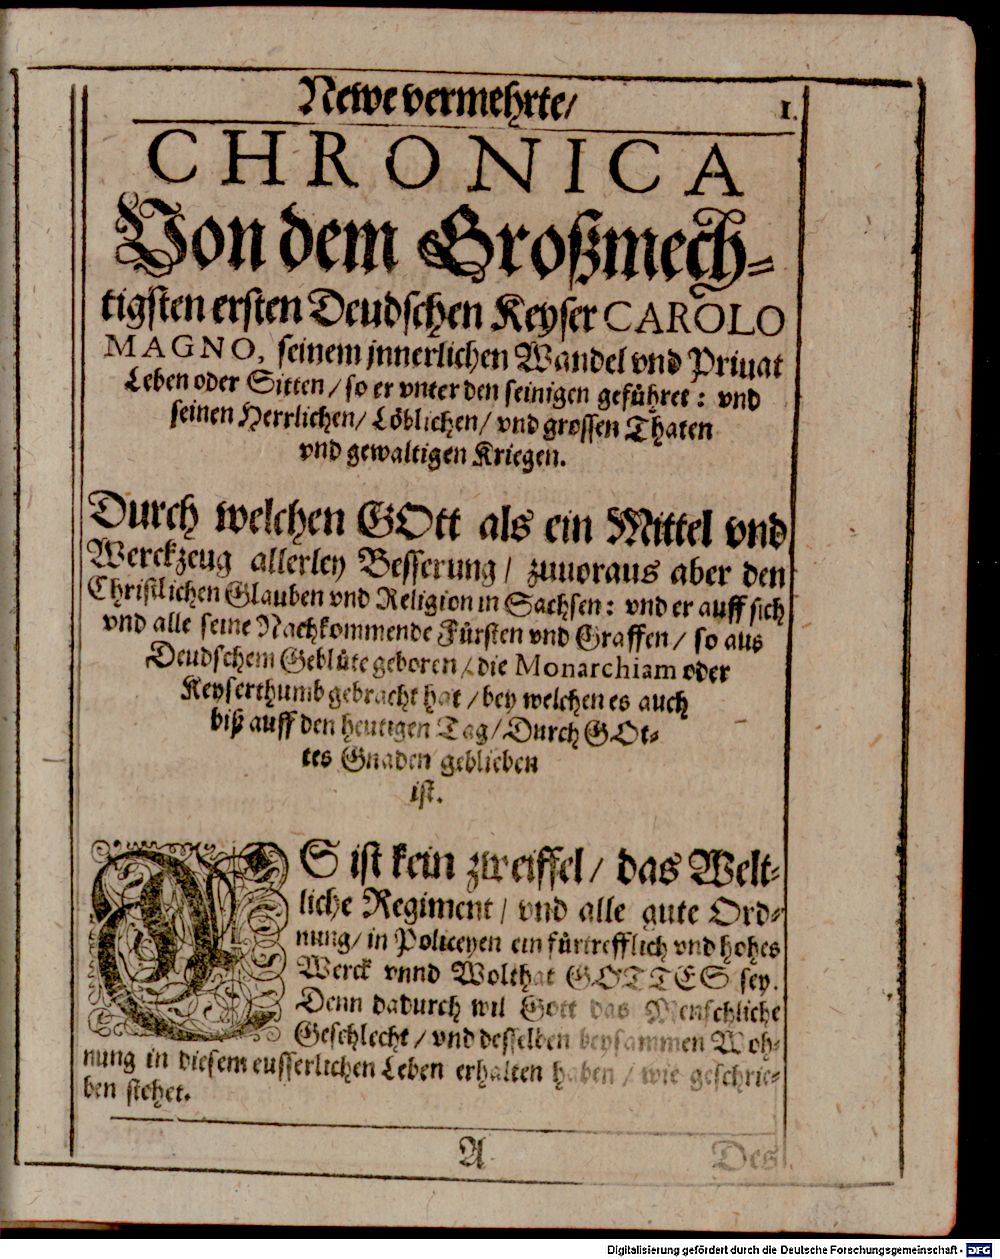 Newe vermehrte/
1.
CHRONICA
Von dem Großmech-
tigsten ersten Deudschen Keyser CAROLO
MAGNO, seinem jnnerlichen Wandel vnd Priuat
Leben oder Sitten / so er vnter den seinigen geführet: vnd
seinen Herrlichen/ Löblichen/ vnd grossen Thaten
vnd gewaltigen Kriegen.
Durch welchen GOtt als ein Mittel vnd
Werckzeug allerley Besserung / zuuoraus aber den
Christlichen Glauben vnd Religion in Sachsen: vnd er auff sich
vnd alle seine Nachkommende Fürsten vnd Graffen/ so aus
Deudschem Geblüte geboren/ die Monarchiam oder
Keyserthumb gebracht hat / bey welchen es auch
biß auff den heutigen Tag/ Durch GOt-
tes Gnaden geblieben
ist.
ES ist kein zweiffel/ das Welt-
liche Regiment/ vnd alle gute Ord-
nung/ in Policeyen ein fürtrefflich vnd hohes
Werck vnnd Wolthat GOTTES sey.
Denn dadurch wil Gott das Menschliche
Geschlecht / vnd desselben beysammen Woh-
nung in diesem eusserlichen Leben erhalten haben / wie geschrie-
ben stehet.
A
Des
Digitalisierung gefördert durch die Deutsche Forschungsgemeinschaft - DFG